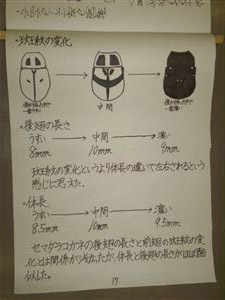 ・斑紋の変化
中間
・後翅の長さ
うすい → 中間 → 濃い
8mm 10mm 9mm
斑紋の変化というより体長の違いで左右されるという
感じに思えた。
・体長
うすい → 中間 → 濃い
8.5mm 10mm 9.5mm
セマダラコガネの後翅の長さと前翅の斑紋の変
化とは関係がうすかったが、体長と後翅の長さがほぼ酷
似した。
17